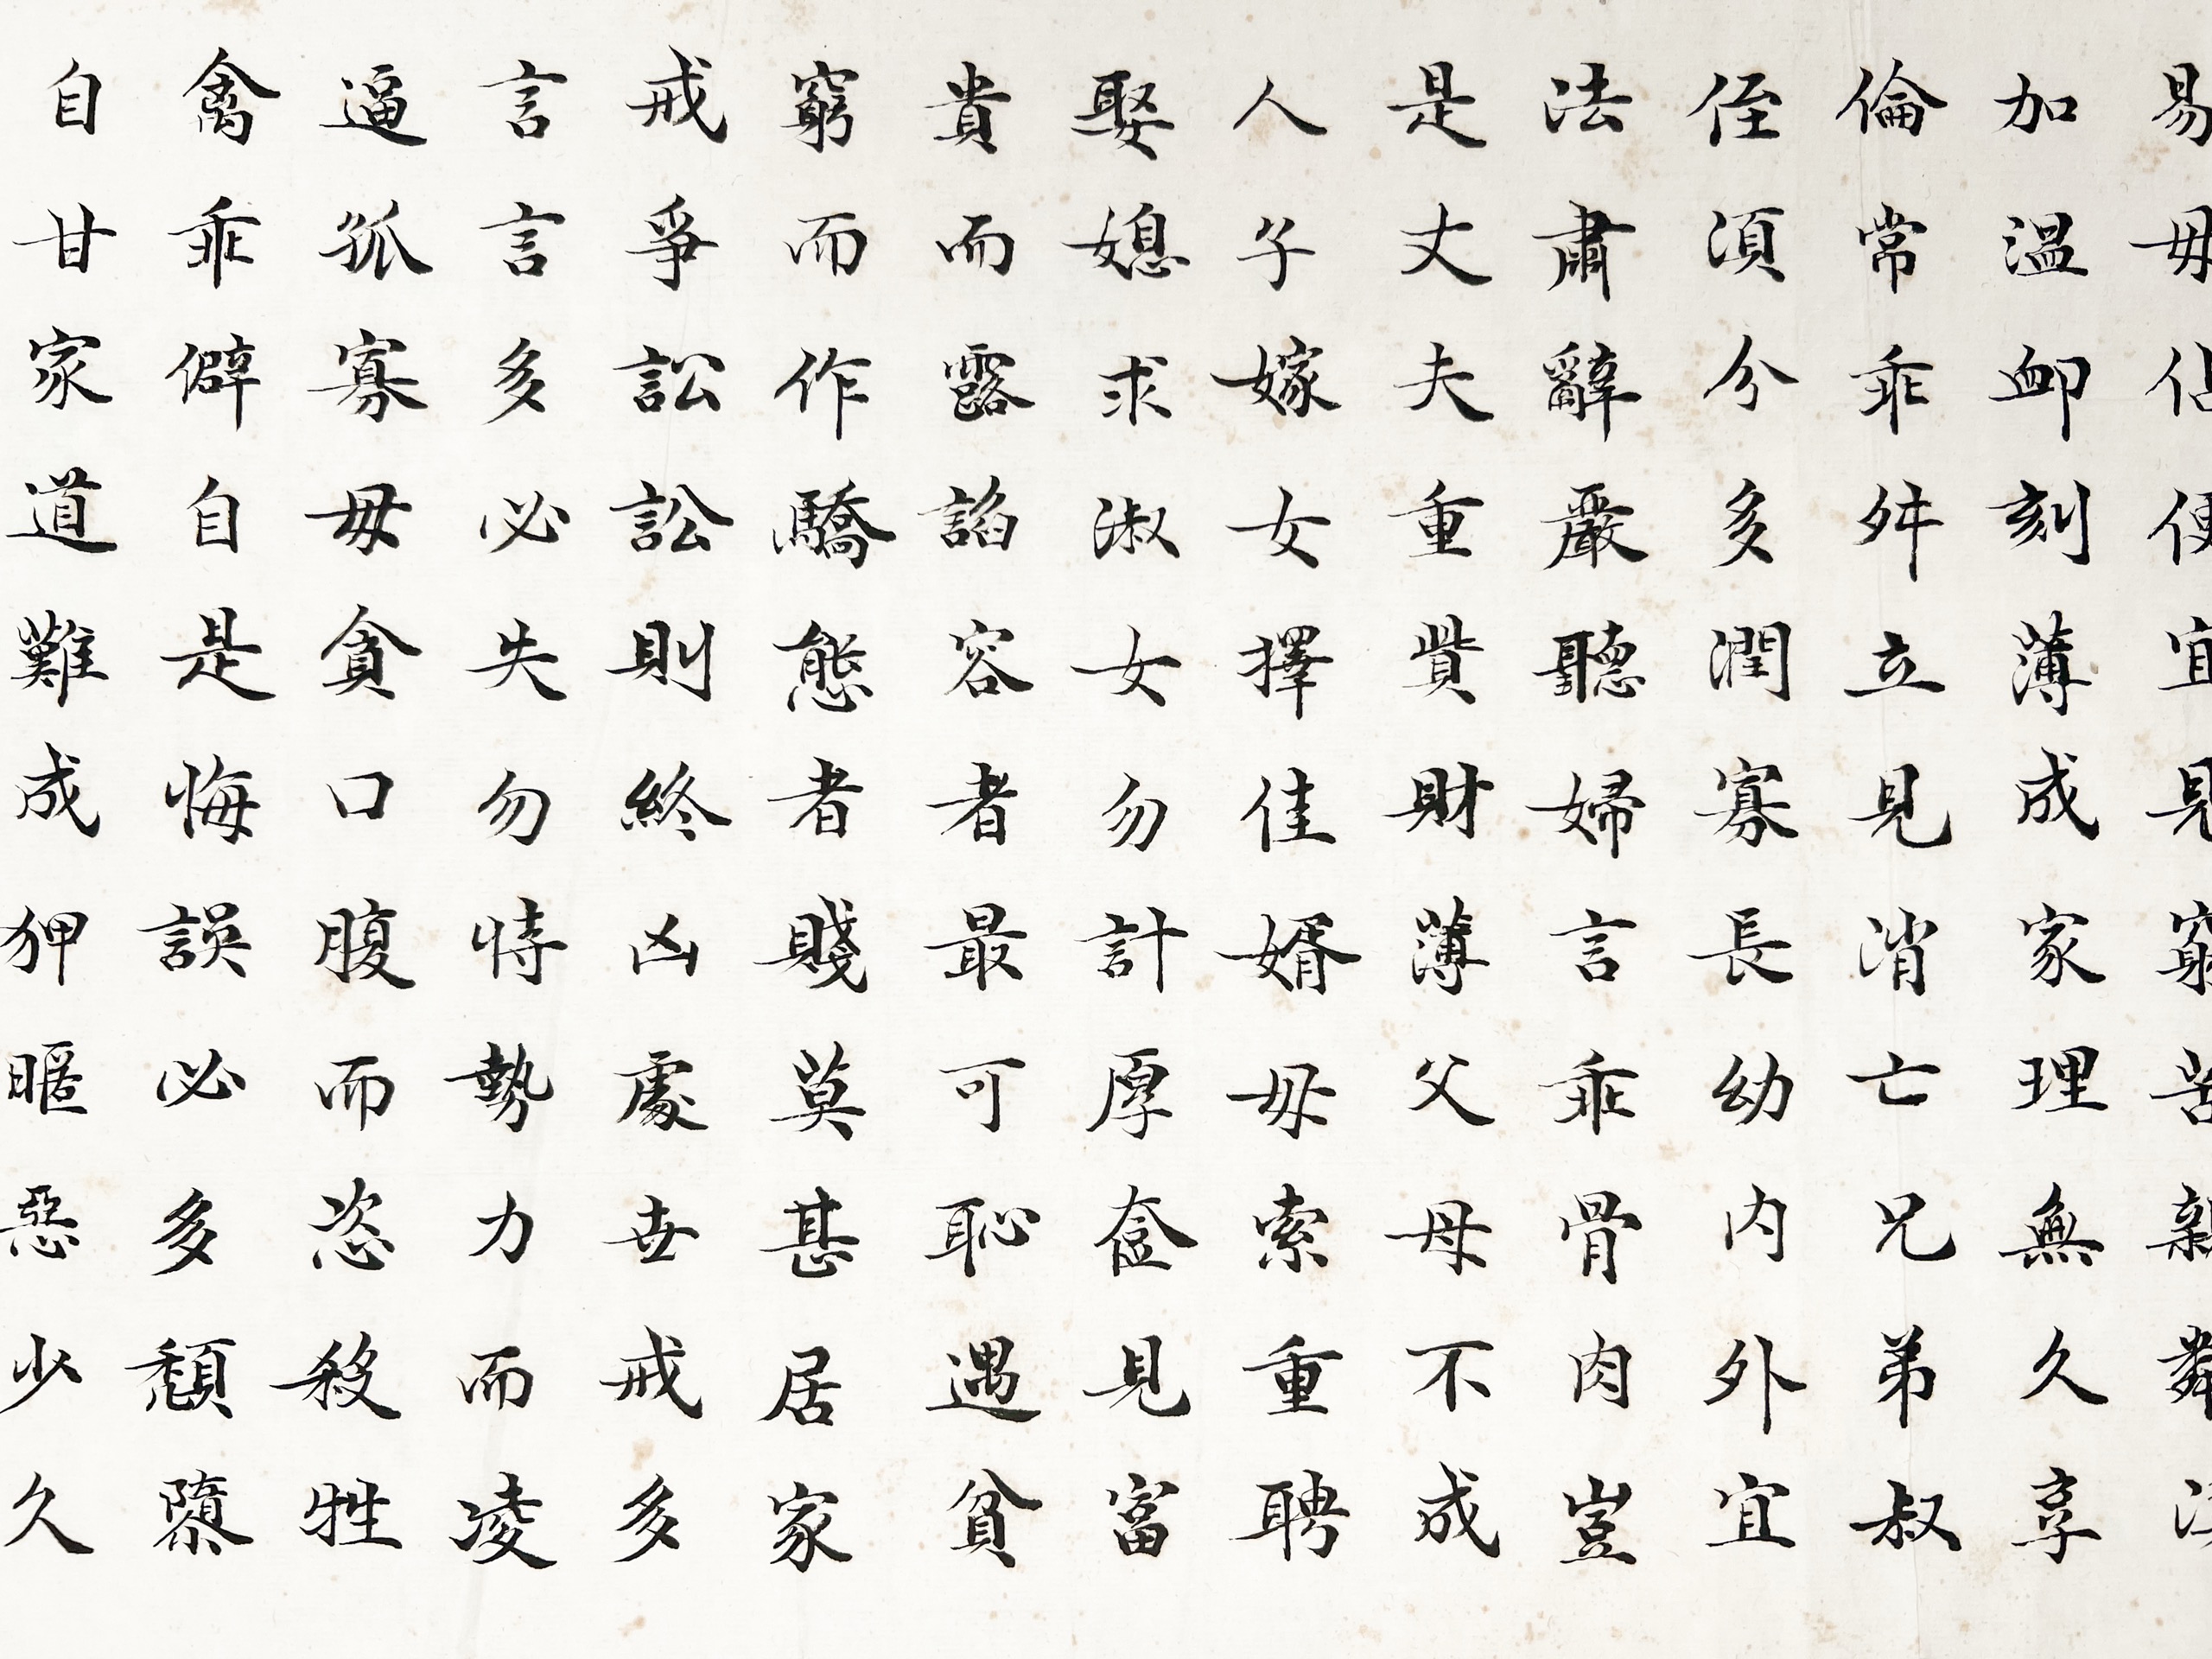 易毋佔便宜見窮苦親鄰
加溫卹刻薄成家理無久享
倫常乖舛立見消亡兄弟叔
侄湏分多潤寡長幼內外宜
法肅辭嚴聽婦言乖骨肉豈
是丈夫重貲財薄父母不成
人子嫁女擇佳婿毋索重聘
娶媳求淑女勿計厚奩見富
貴而露諂容者最可恥遇貧
窮而作驕態者賤莫甚居家
戒爭訟訟則終凶處世戒多
言言多必失勿恃勢力而凌
逼孤寡毋貪口腹而恣殺牲
禽乖僻自是悔誤必多頹隳
自甘家道難成狎暱惡少久